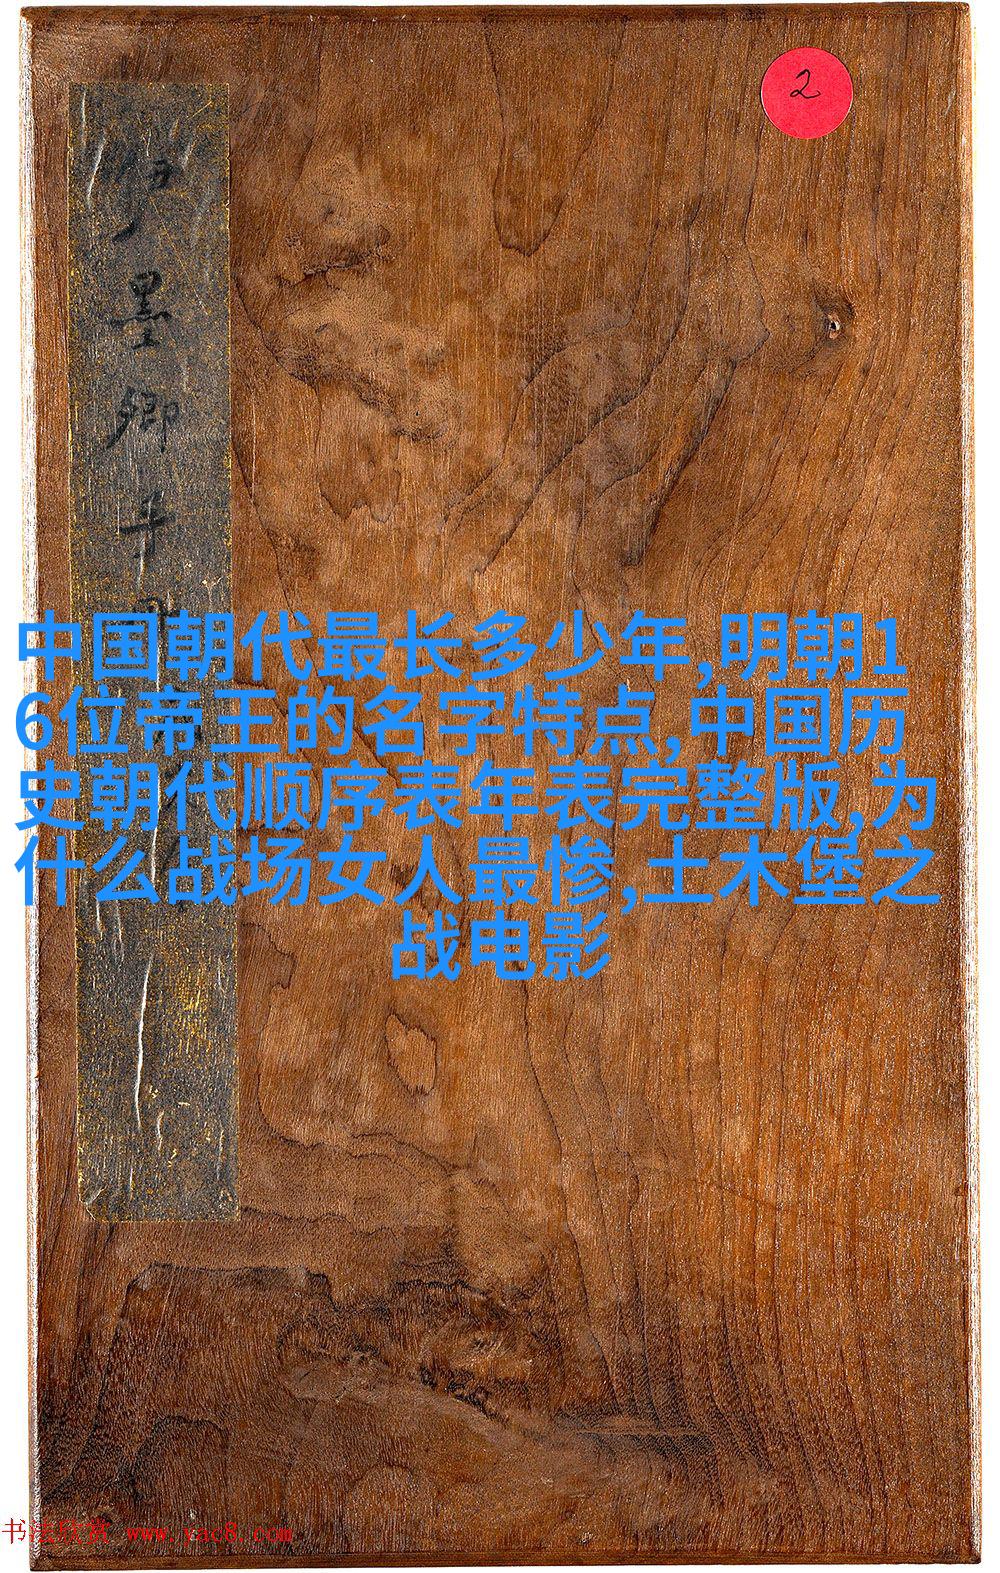 2
伊墨卿手
中国朝代最长多少年,明朝1
6位帝王的名字特点,中国历
史朝代顺序表年表完整版,为
什么战场女人最惨,土木堡之
战电影
书法欣赏 www.yac8.com